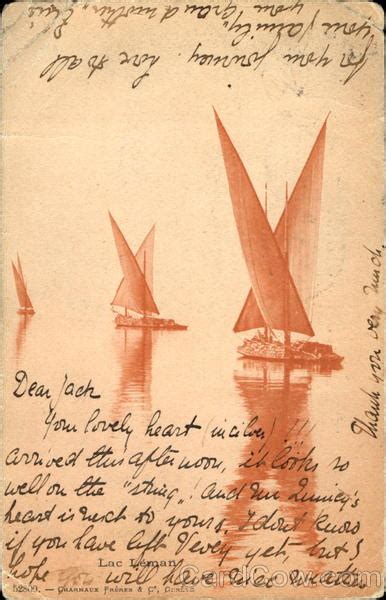 Dear Jack
Your lovely heart (in silver) !!!
arrived this afternoon, it looks so
well on the "string", and
heart is next to yours. I don't know
if you have left Vevey yet, but I
hope you will have weather
for your journey. Love to all
your family,
your
Thank you very much.
Lac Léman
52809. – Charnaux Frères & Co, Genève
CardCow.com